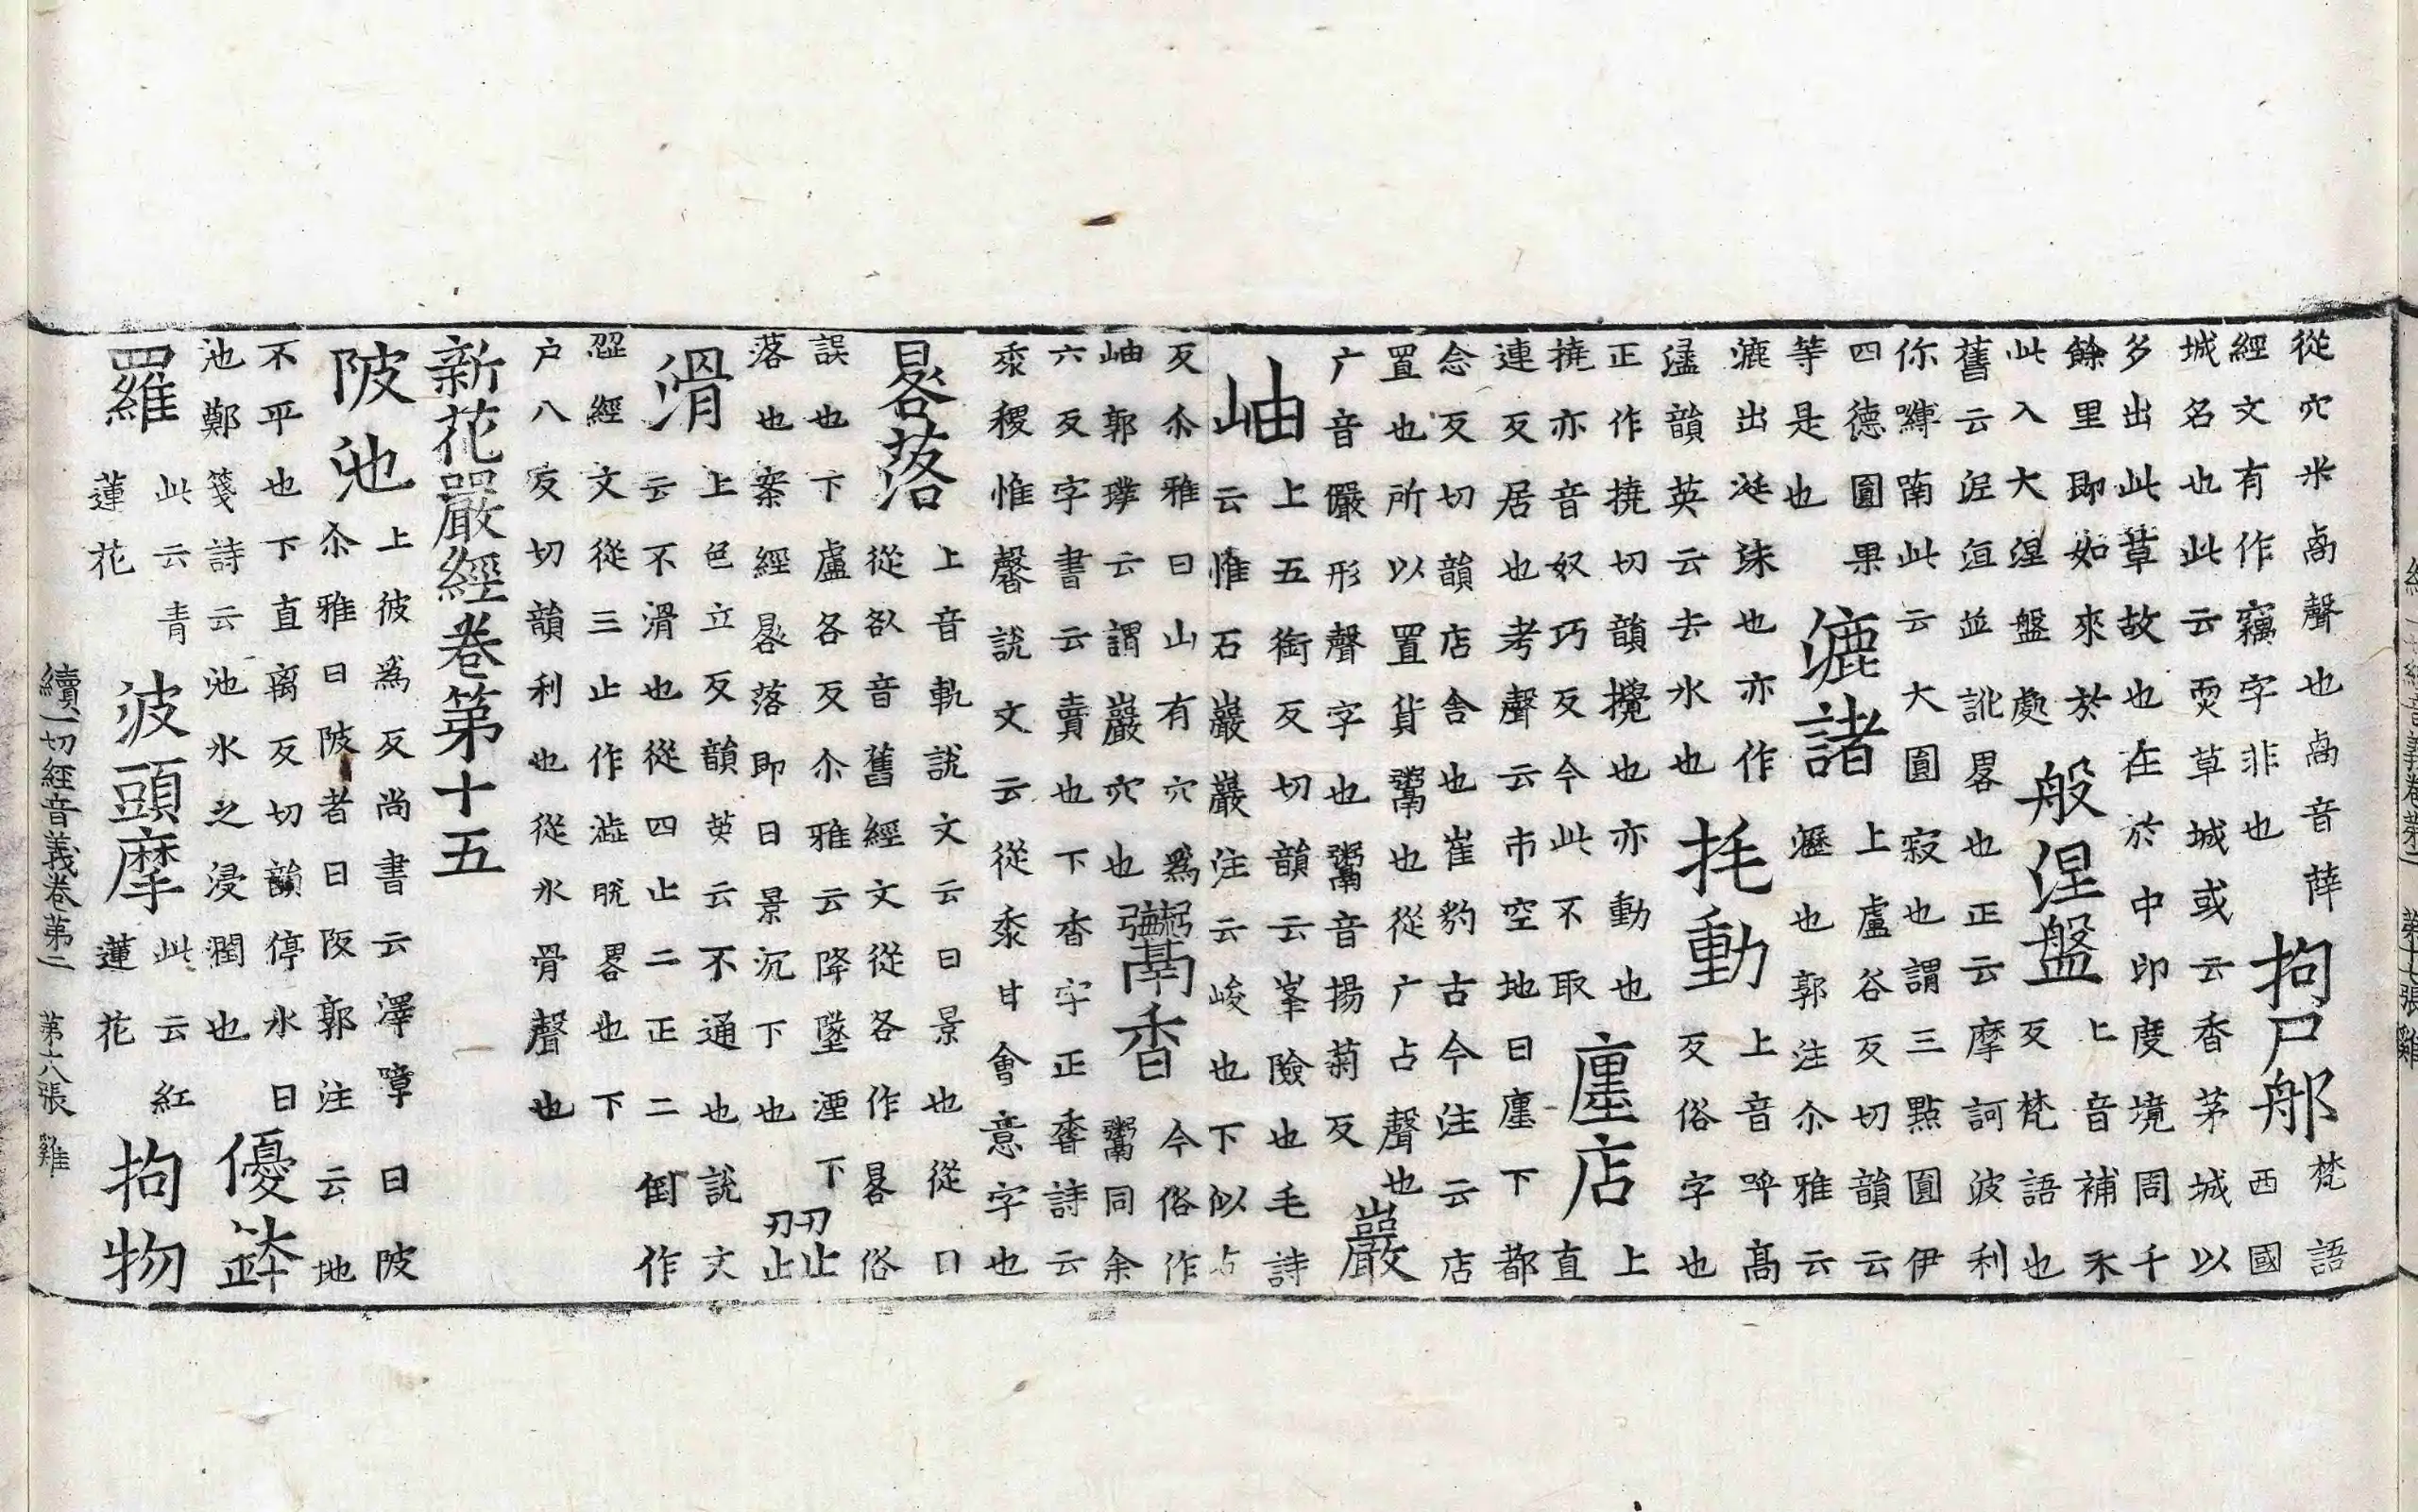 從穴米卨聲也卨音薛
經文有作竊字非也
拘尸那
梵語
西國
城名也此云耎草城或云香茅城以
多出此草故也在於中印度境周千
餘里即如來於
此入大涅盤處
般涅盤
上音補禾
反梵語也
舊云泥洹並訛畧也正云摩訶波利
你嚩喃此云大圓寂也謂三點圓伊
四德圓果
等是也
漉諸
上盧谷反切韻云
瀝也郭注尒雅云
漉出涎沫也亦作
盪韻英云去水也
㧌動
上音呼高
反俗字也
正作撓切韻攪也亦動也
撓亦音奴巧反今此不取
廛店
上
直
連反居也考聲云市空地曰廛下都
念反切韻店舍也崔豹古今注云店
置也所以置貨鬻也從广占聲也
广音儼形聲字也鬻音揚菊反
巖
岫
上五銜反切韻云峯險也毛詩
云惟石巖巖注云峻也下似
反尒雅曰山有穴爲
岫郭璞云謂巖穴也
鬻香
今俗作
鬻同余
六反字書云賣也下香字正𪏰詩云
黍稷惟馨說文云從黍甘會意字也
晷落
上音軌說文云日景也從口
從咎音舊經文從各作晷俗
誤也下盧各反尒雅云降墜湮下
落也案經晷落即日景沉下也
歰
滑
上色立反韻英云不通也說文
云不滑也從四止二正二倒作
歰經文從三止作澁脫畧也下
戶八反切韻利也從水骨聲也
新花嚴經卷第十五
陂池
上彼爲反尚書云澤障曰陂
尒雅曰陂者曰阪郭注云地
不平也下直离反切韻停水曰
池鄭箋詩云池水之浸潤也
優鉢
羅
此云青
蓮花
波頭摩
此云紅
蓮花
拘物
續一切經音義卷第二 第六張 雞